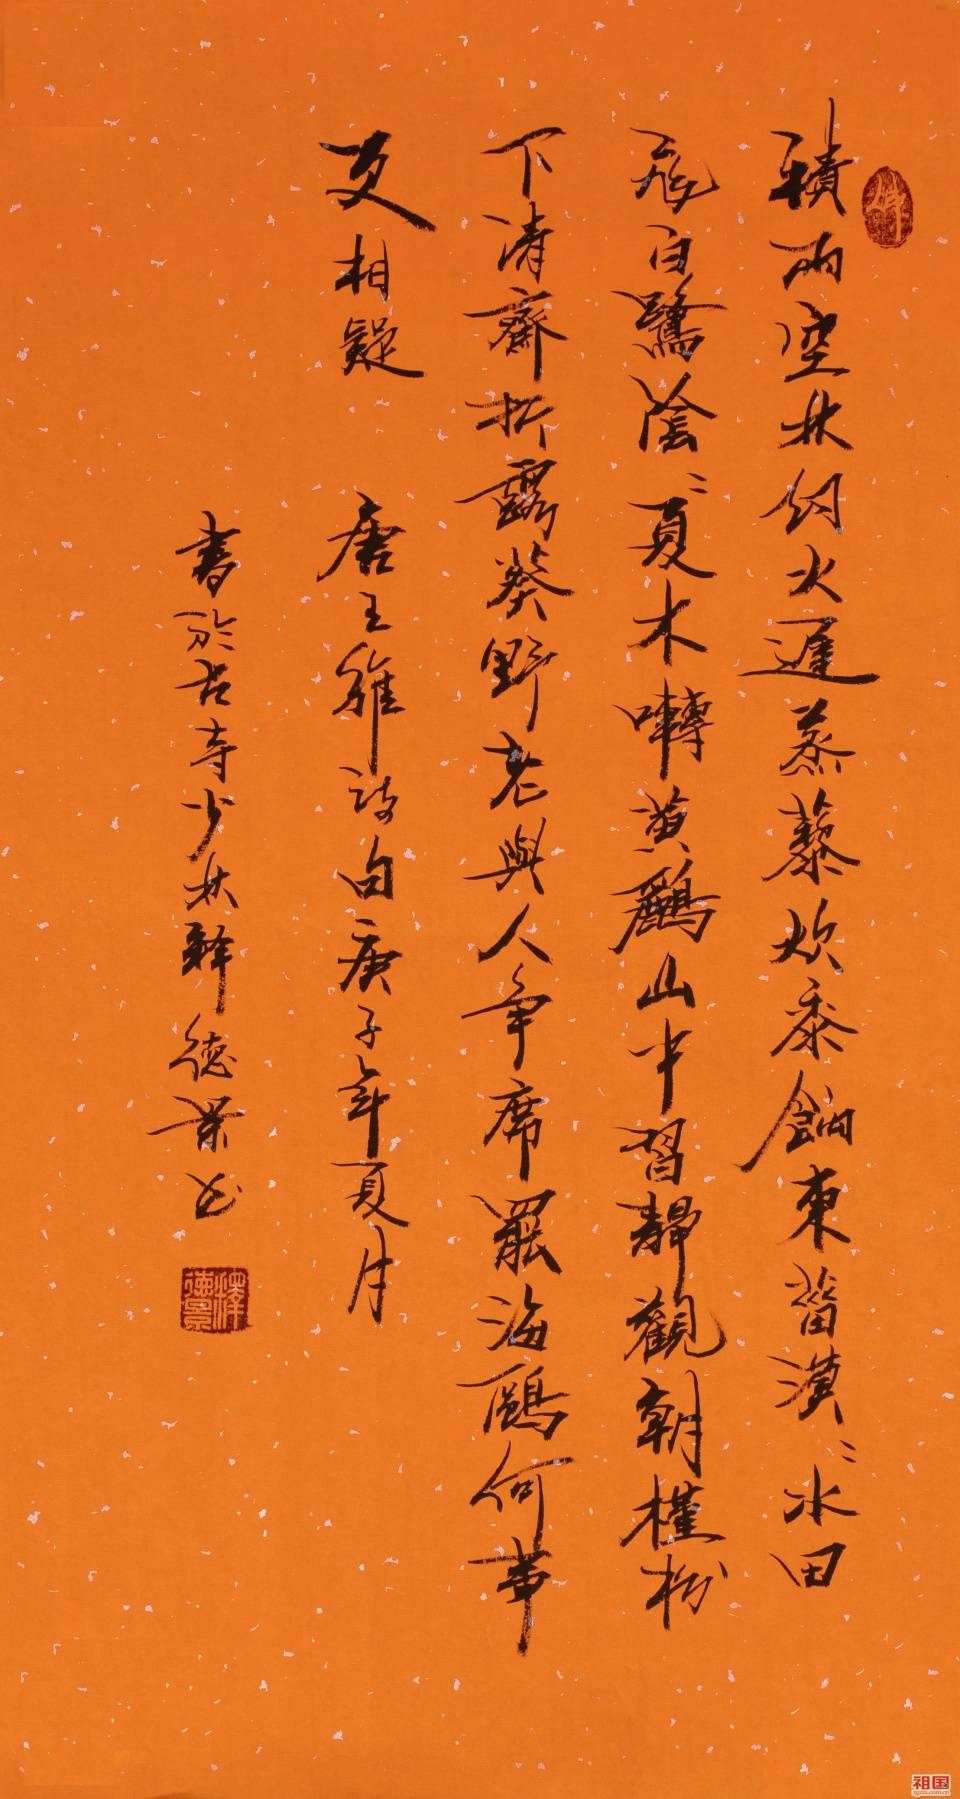 積雨空林烟火遲蒸藜炊黍餉東菑漠〻水田
飛白鷺陰〻夏木囀黃鸝山中習靜觀朝槿松
下清齋折露葵野老與人爭席罷海鷗何事
更相疑 唐王維詩句庚子年夏月
書於古寺少林釋德景书
釋德景
祖国